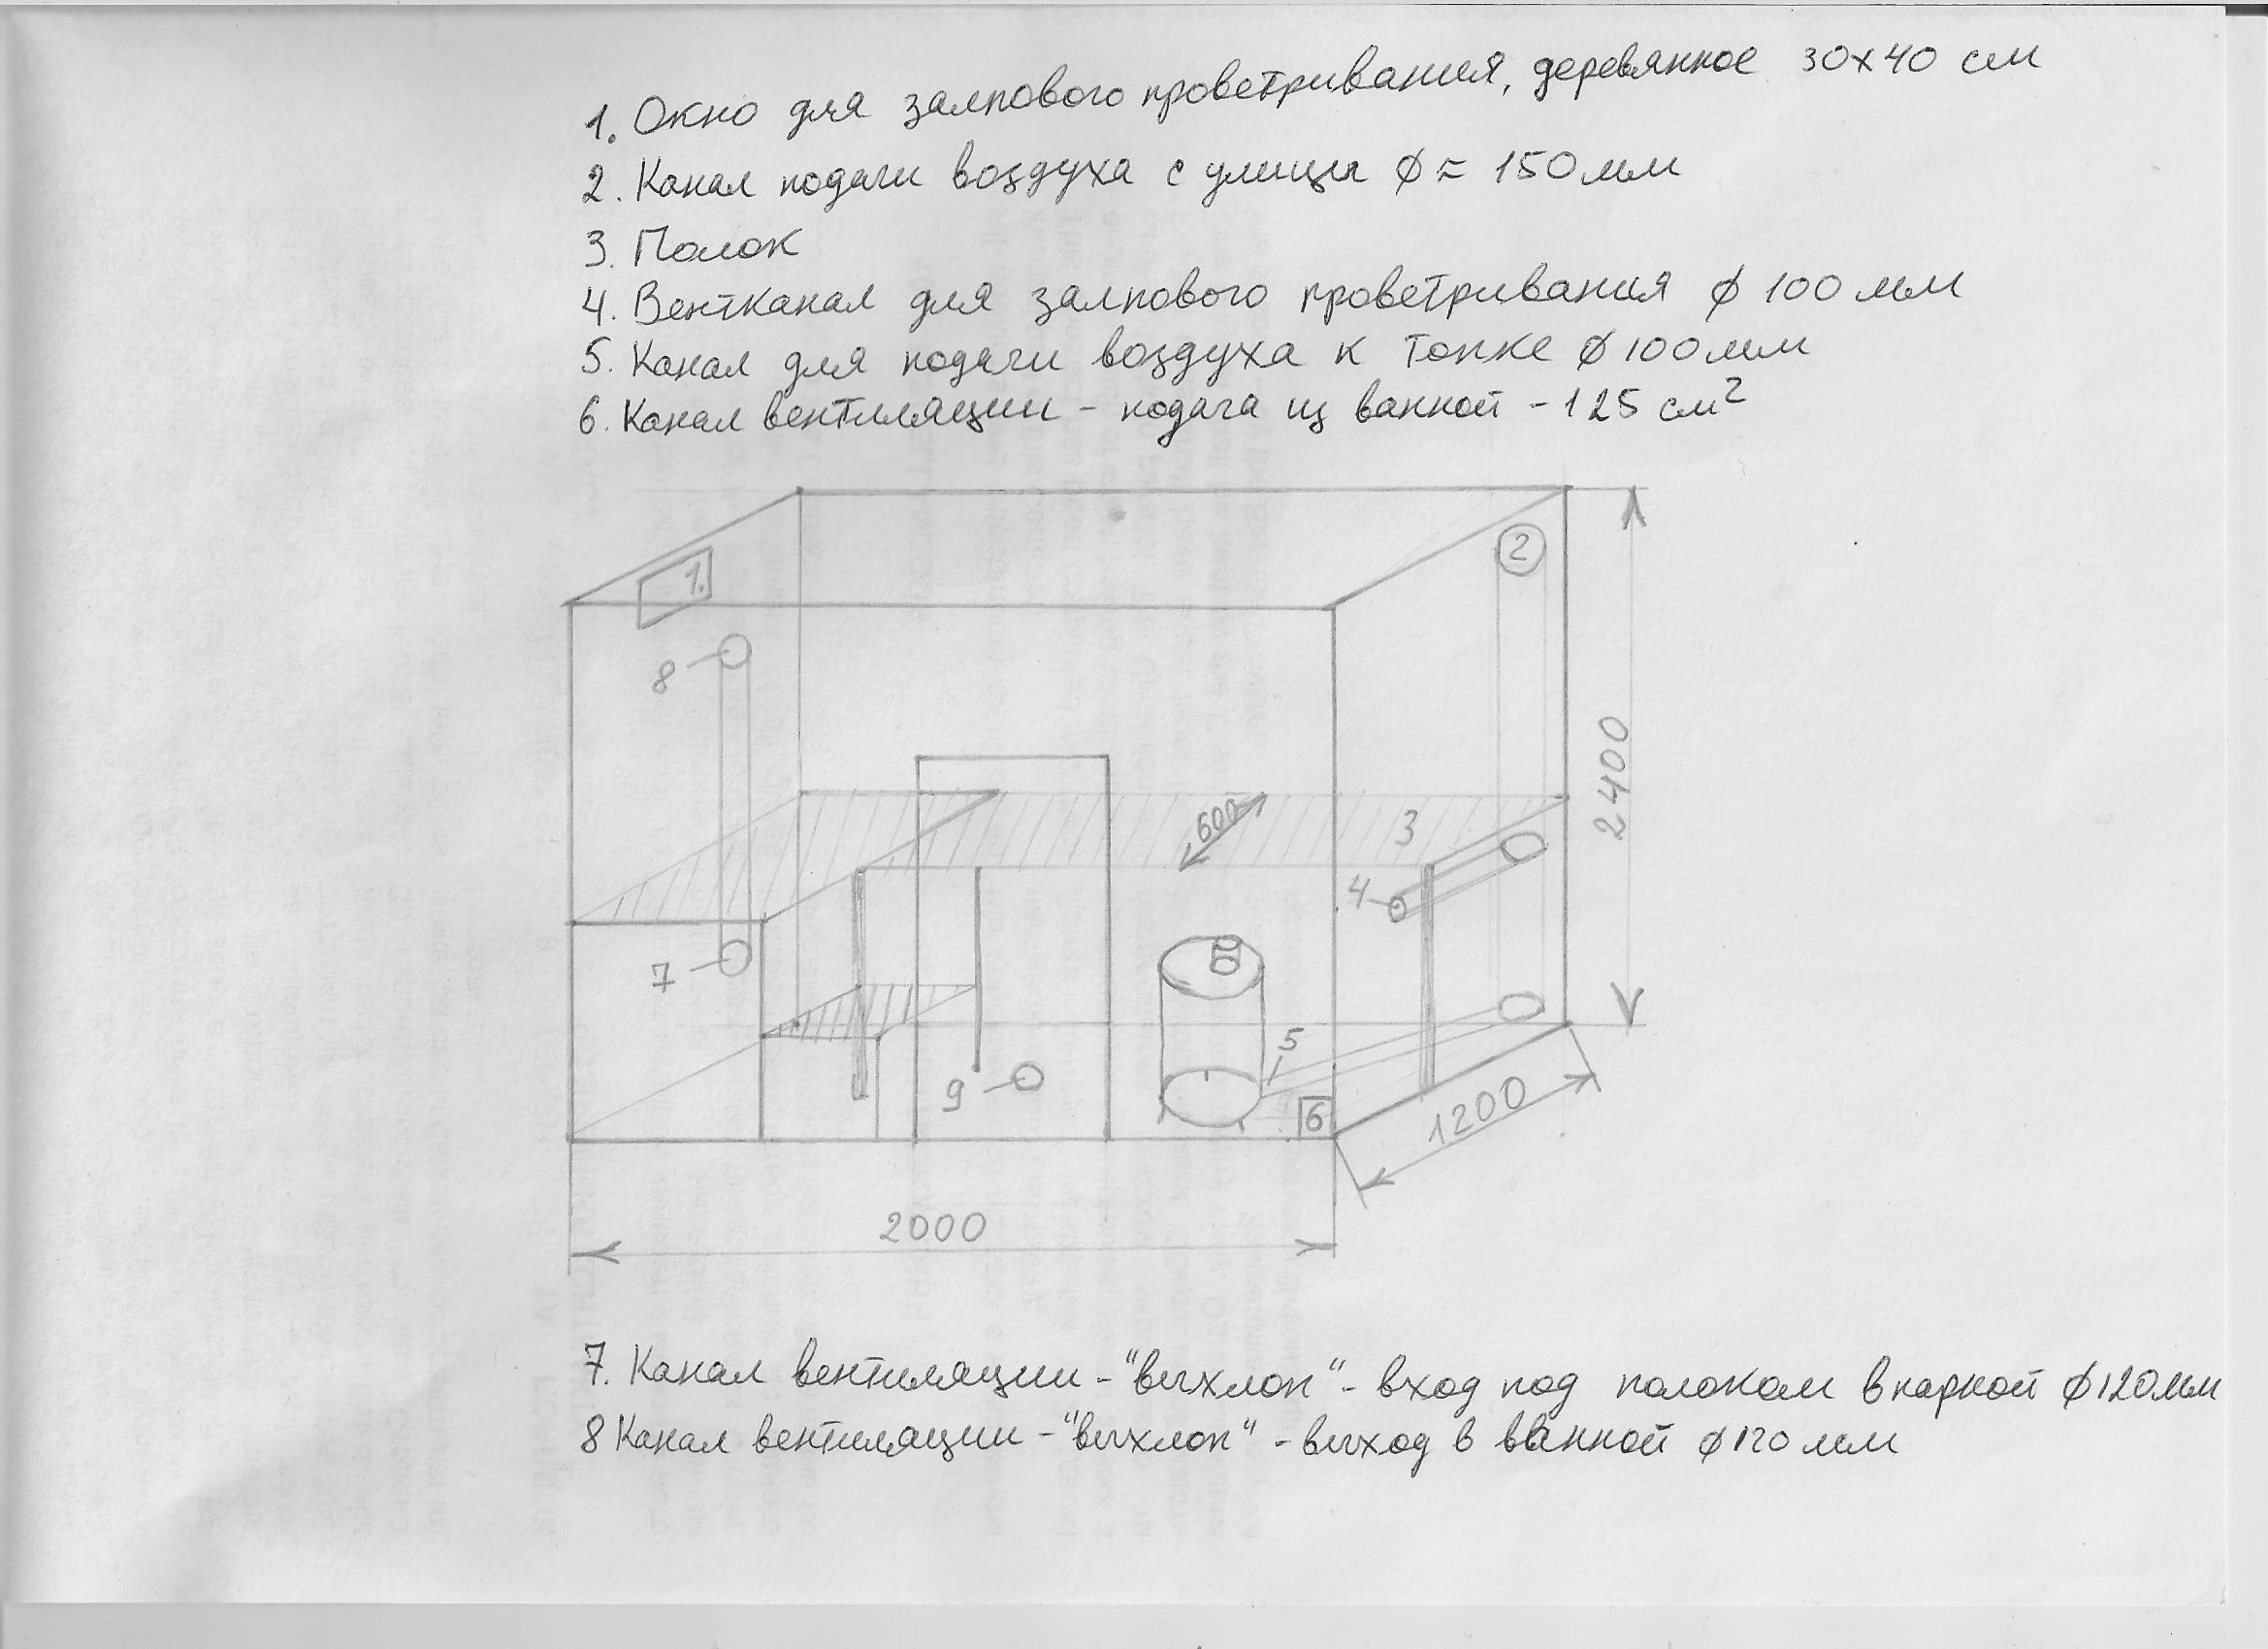 1. Окно для залпового проветривания, деревянное 30х40 см
2. Канал подачи воздуха с улицы ф ≈ 150 мм
3. Полок
4. Вентканал для залпового проветривания ф 100 мм
5. Канал для подачи воздуха к топке ф 100 мм
6. Канал вентиляции - подача из ванной - 125 см²
1.
2
8
2400
600
3
4
7
5
9
6
1200
2000
7. Канал вентиляции - "выхлоп" - вход под полоком в парной ф 120 мм
8 Канал вентиляции - "выхлоп" - выход в ванной ф 120 мм